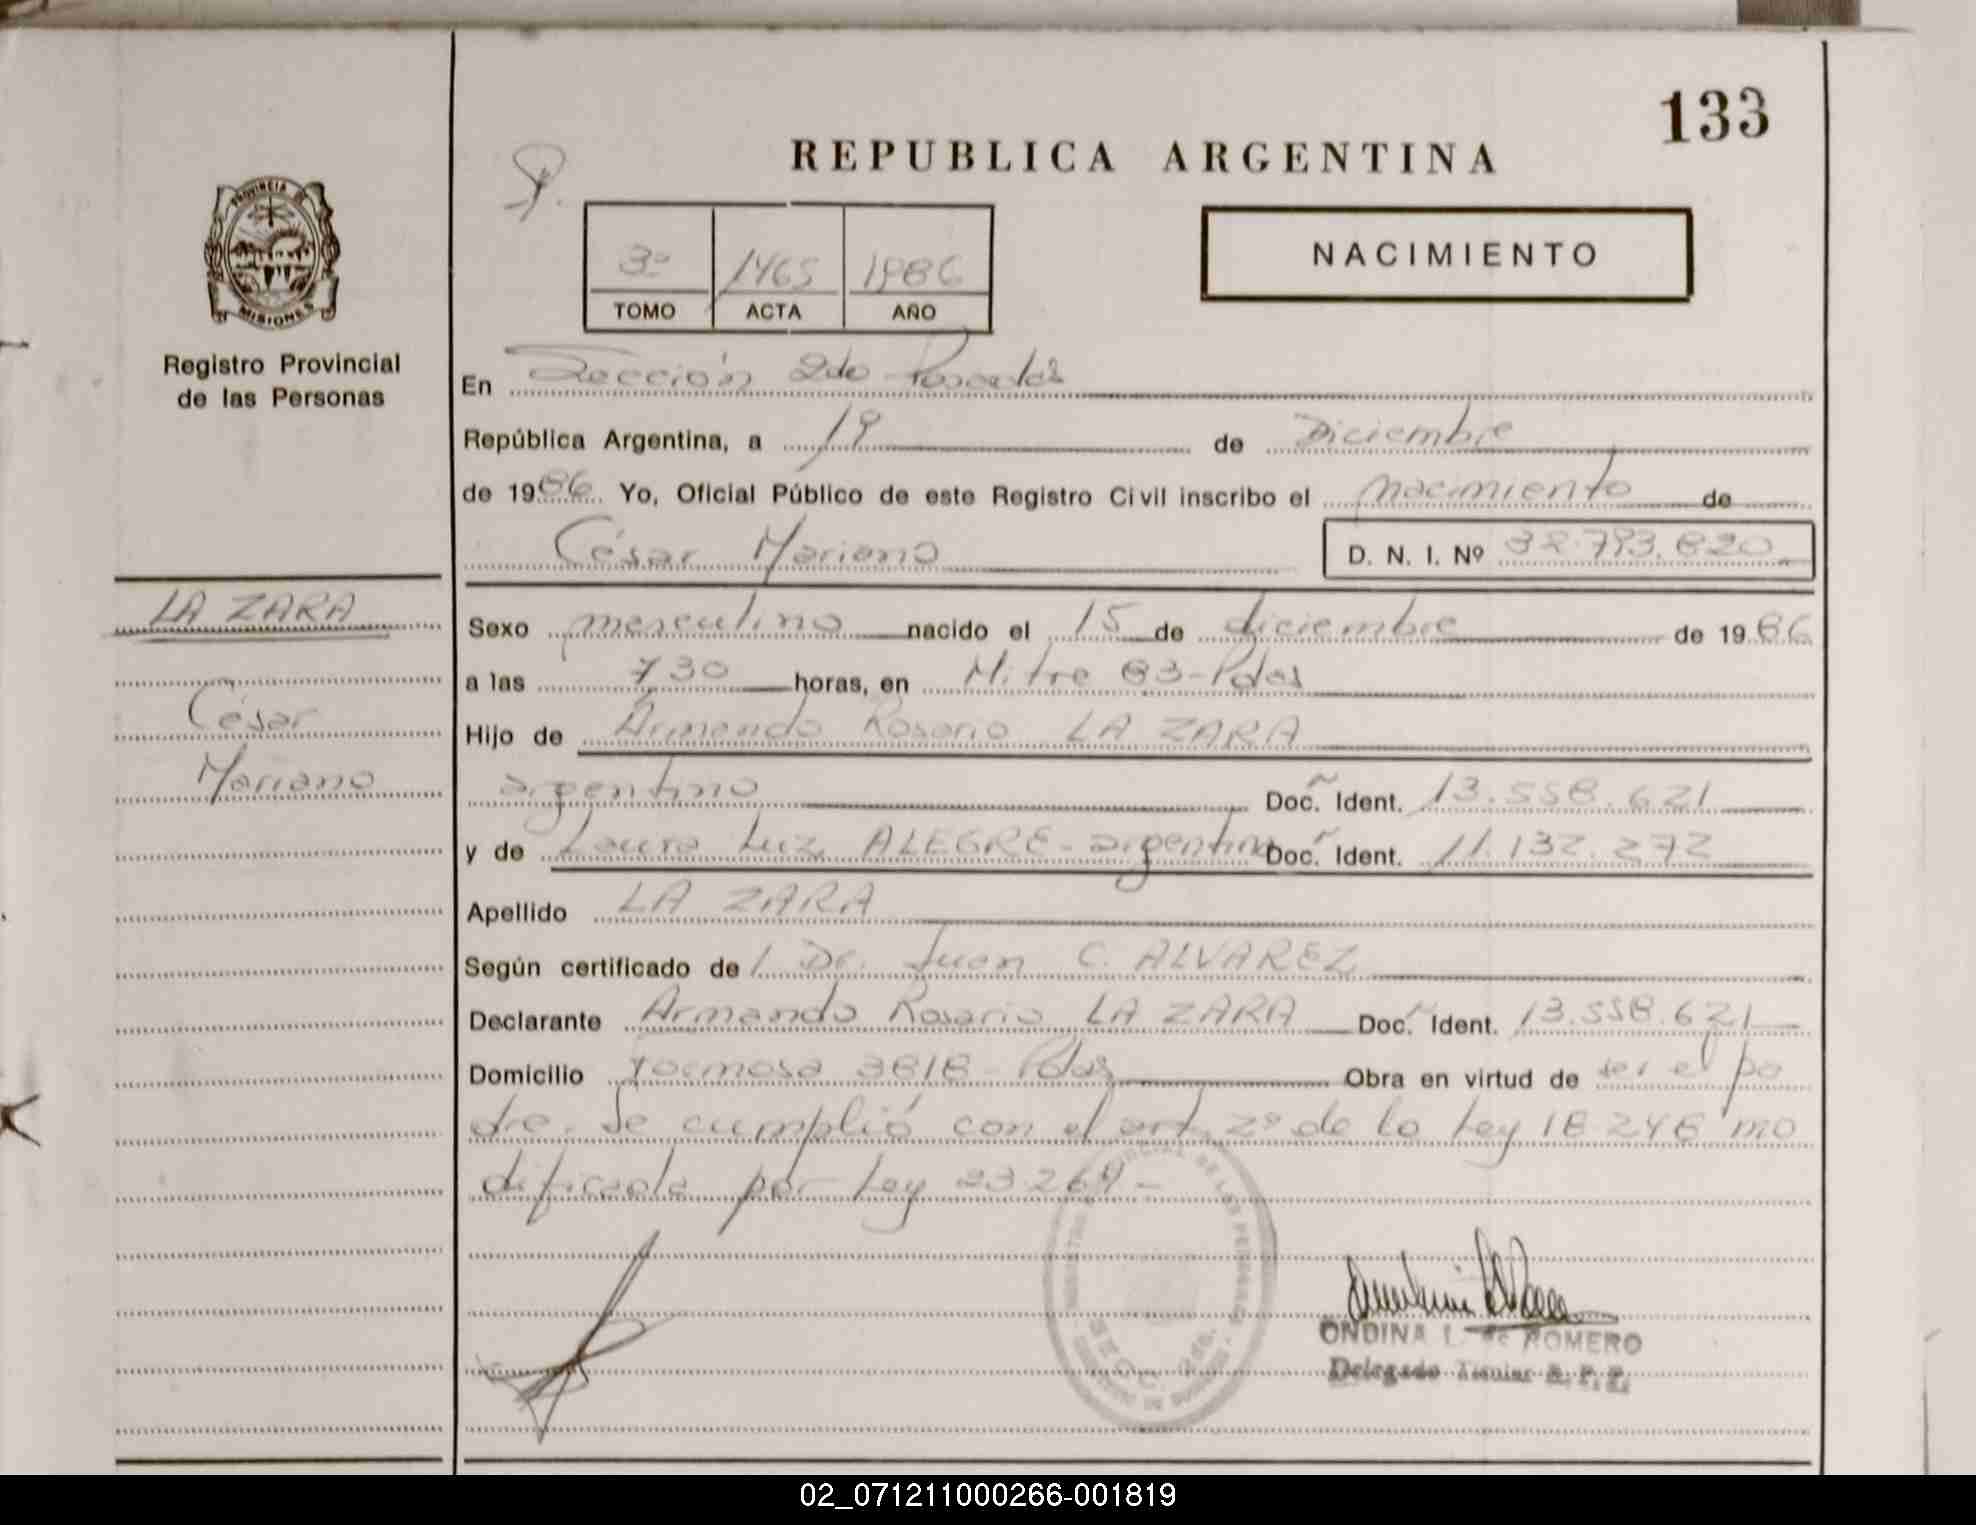 133
REPUBLICA ARGENTINA
PROVINCIA DE
MISIONES
NACIMIENTO
3º 1465 1986
TOMO ACTA AÑO
Registro Provincial
de las Personas
En Sección 2do Posadas
República Argentina, a 19 de Diciembre
de 1986. Yo, Oficial Público de este Registro Civil inscribo el nacimiento de
César Mariano D. N. I. Nº 793.820
LA ZARA
César
Mariano
Sexo masculino nacido el 15 de diciembre de 1986
a las 730 horas, en Mitre 83-Pdas
Hijo de Armando Rosario LA ZARA
argentino Doc. Ident. 13.558.621
y de Laura Luz ALEGRE - argentina Doc. Ident. 11.132.272
Apellido LA ZARA
Según certificado de / Dr. Juan C. ALVAREZ
Declarante Armando Rosario LA ZARA Doc. Ident. 13.558.621
Domicilio Formosa 3818 - Pdas Obra en virtud de ser el pa
dre. Se cumplió con el art. 2º de la Ley 18.248 mo
dificada por Ley 23.264 -
SECC. 2da.
ONDINA L. de ROMERO
Delegado Titular R. P. P.
02_071211000266-001819